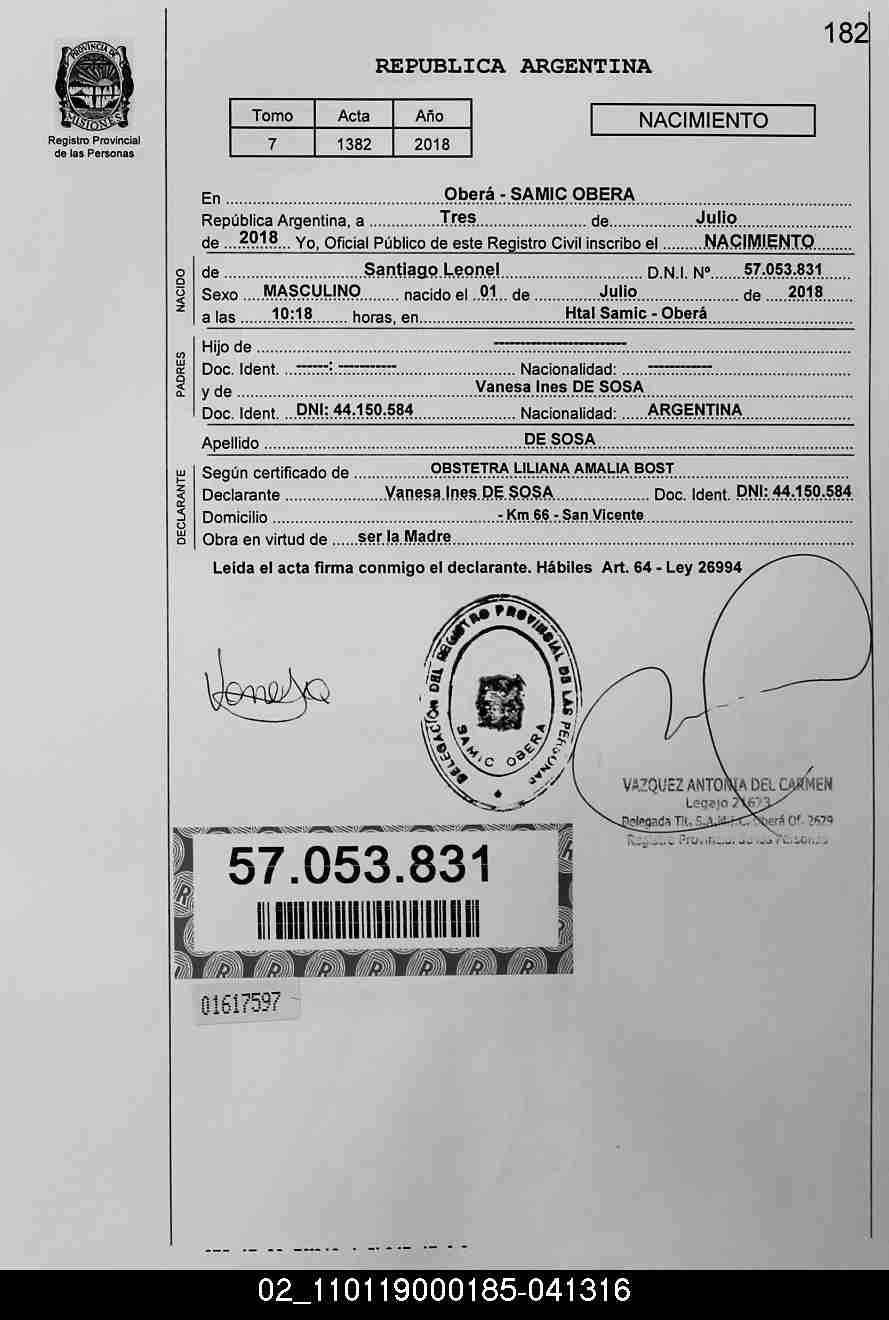 182
PROVINCIA DE
MISIONES
Registro Provincial
de las Personas
REPUBLICA ARGENTINA
Tomo Acta Año
7 1382 2018
NACIMIENTO
En Oberá - SAMIC OBERA
República Argentina, a Tres de Julio
de 2018 Yo, Oficial Público de este Registro Civil inscribo el NACIMIENTO
NACIDO
de Santiago Leonel D.N.I. Nº 57.053.831
Sexo MASCULINO nacido el 01 de Julio de 2018
a las 10:18 horas, en Htal Samic - Oberá
PADRES
Hijo de -----------------------
Doc. Ident. ------: ----------- Nacionalidad: ------------
y de Vanesa Ines DE SOSA
Doc. Ident. DNI: 44.150.584 Nacionalidad: ARGENTINA
Apellido DE SOSA
DECLARANTE
Según certificado de OBSTETRA LILIANA AMALIA BOST
Declarante Vanesa Ines DE SOSA Doc. Ident. DNI: 44.150.584
Domicilio - Km 66 - San Vicente
Obra en virtud de ser la Madre
Leída el acta firma conmigo el declarante. Hábiles Art. 64 - Ley 26994
Vanesa
DELEGACIÓN DEL REGISTRO PROVINCIAL DE LAS PERSONAS
SAMIC OBERA
VAZQUEZ ANTONIA DEL CARMEN
Legajo 21673
Delegada Tit. S.A.M.I.C. Oberá Of. 2679
Registro Provincial de las Personas
57.053.831
R R R R R R R R R
01617597
02_110119000185-041316